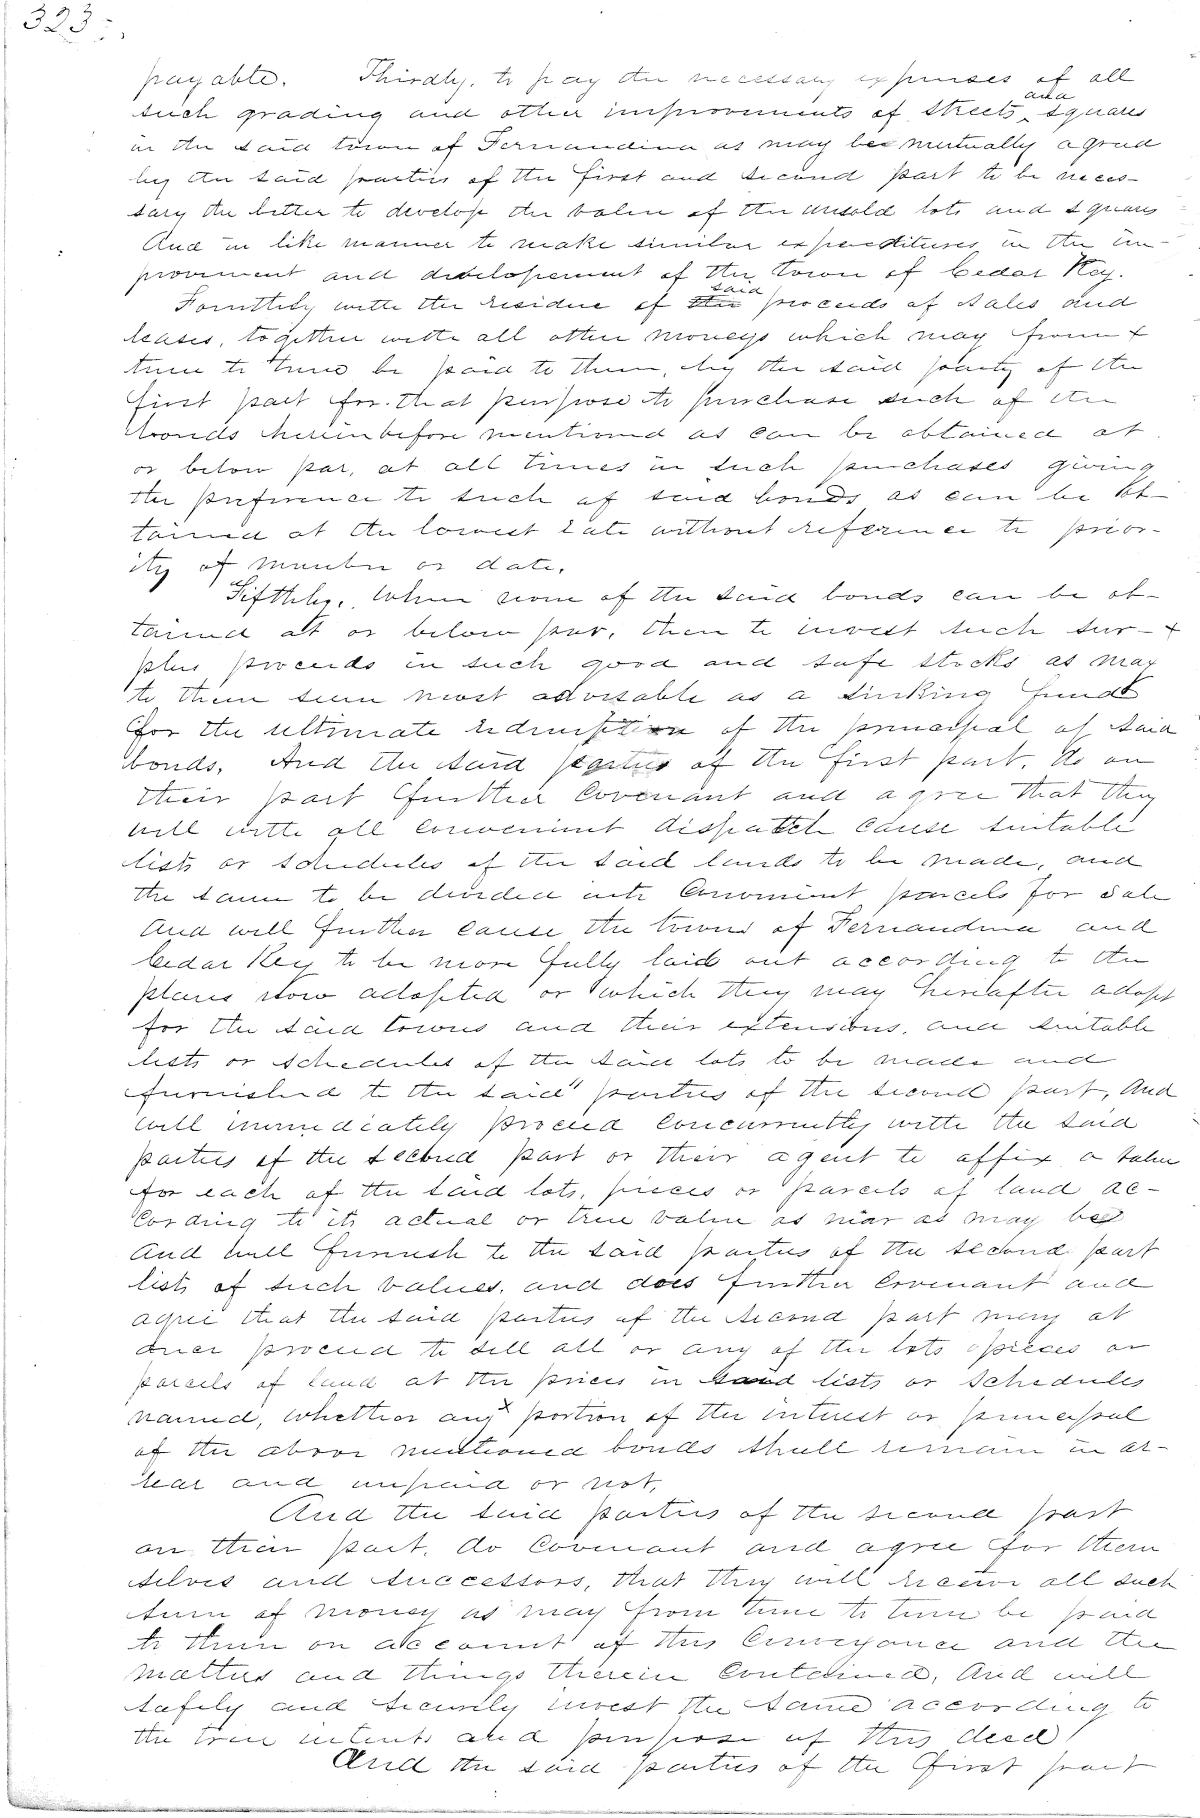 323.
payable. Thirdly, to pay the necessary expenses of all
such grading and other improvements of streets and squares
in the said town of Fernandina as may be mutually agreed
by the said parties of the first and second part to be neces-
sary the better to develop the value of the unsold lots and squares
And in like manner to make similar expenditures in the im-
provement and developement of the town of Cedar Key.
Fourthly with the residue of the said proceeds of sales and
leases, together with all other moneys which may from
time to time be paid to them, by the said party of the
first part for that purpose to purchase such of the
bonds hereinbefore mentioned as can be obtained at
or below par, at all times in such purchases giving
the preference to such of said bonds as can be ob-
tained at the lowest rate without reference to prior-
ity of number or date.
Fifthly, When none of the said bonds can be ob-
tained at or below par, then to invest such sur-
plus proceeds in such good and safe stocks as may
to them seem most advisable as a sinking fund
for the ultimate redemption of the principal of said
bonds. And the said parties of the first part, do on
their part further covenant and agree that they
will with all convenient dispatch cause suitable
lists or schedules of the said lands to be made, and
the same to be divided into convenient parcels for sale
And will further cause the towns of Fernandina and
Cedar Key to be more fully laid out according to the
plans now adopted or which they may hereafter adopt
for the said towns and their extensions, and suitable
lists or schedules of the said lots to be made and
furnished to the said parties of the second part, And
will immediately proceed concurrently with the said
parties of the second part or their agent to affix a value
for each of the said lots, pieces or parcels of land ac-
cording to its actual or true value as near as may be
And will furnish to the said parties of the second part
lists of such values, and does further covenant and
agree that the said parties of the second part may at
once proceed to sell all or any of the lots pieces or
parcels of land at the prices in said lists or schedules
named, whether any portion of the interest or principal
of the above mentioned bonds shall remain in ar-
rear and unpaid or not,
And the said parties of the second part
on their part, do covenant and agree for them
selves and successors, that they will receive all such
sum of money as may from time to time be paid
to them on account of this Conveyance and the
matters and things therein contained, And will
safely and securely invest the same according to
the true intent and purpose of this deed
And the said parties of the first part